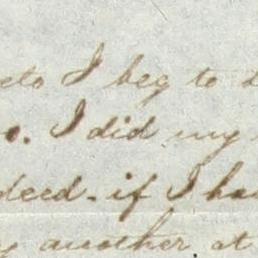 I beg to
o. I did my
deed - if I ha
another at